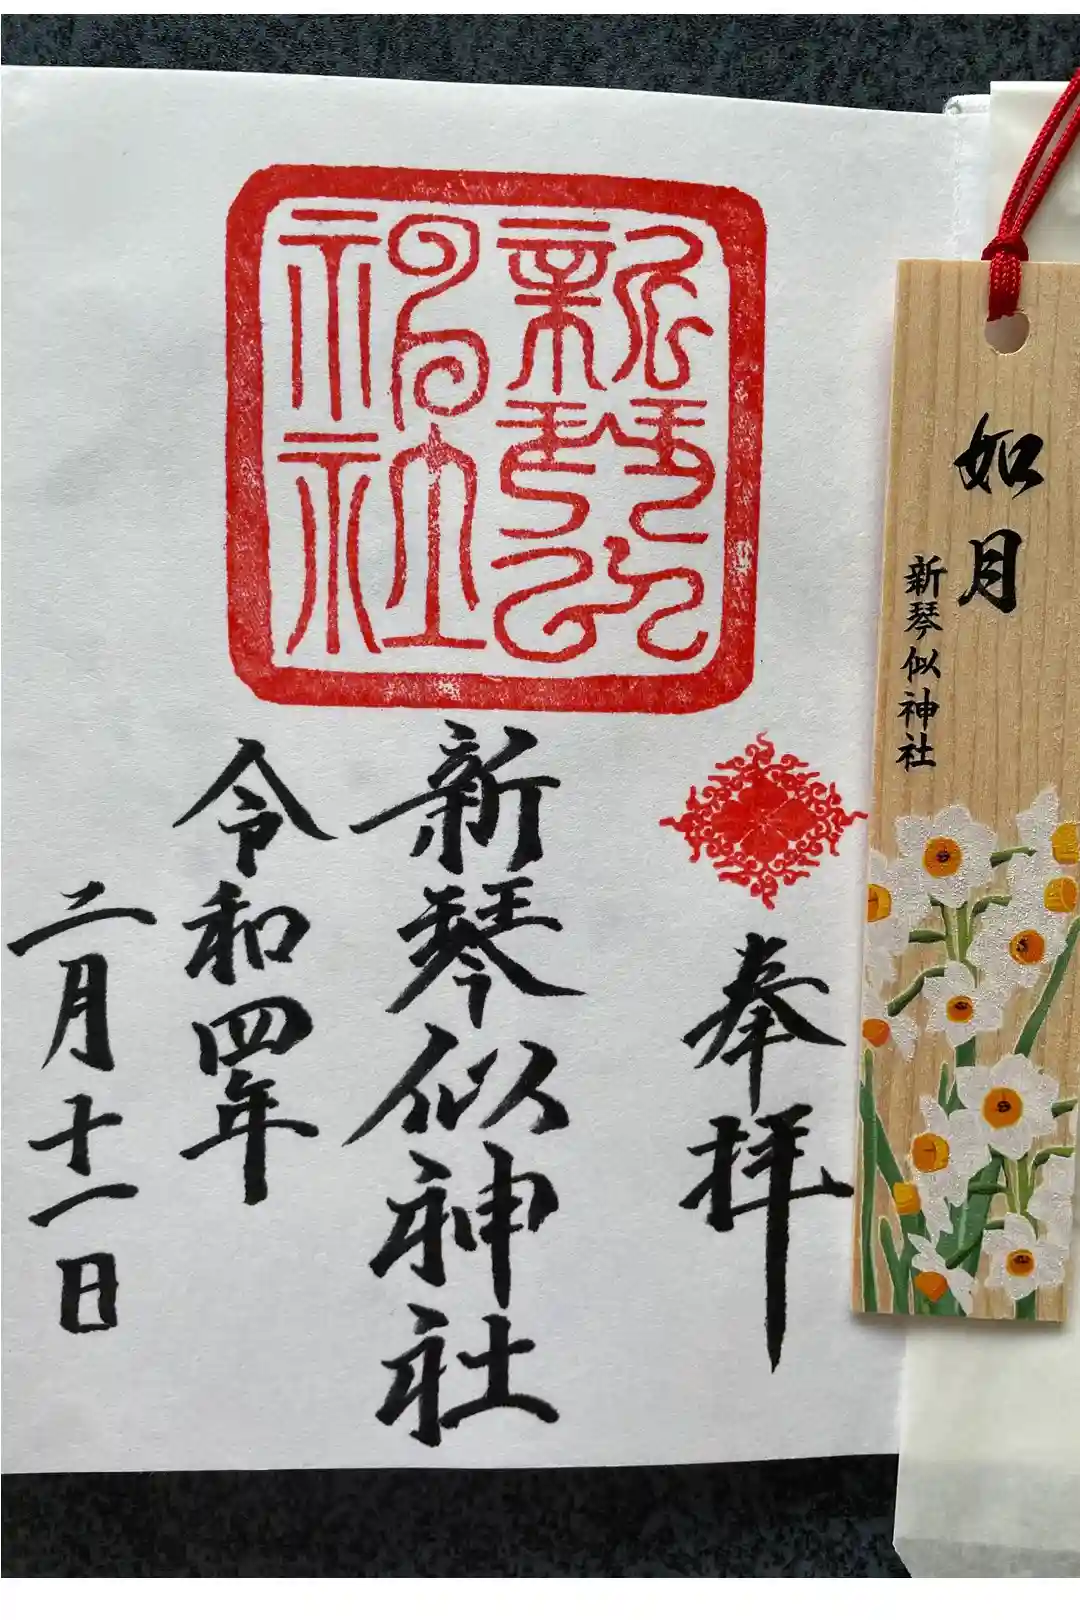 奉拝
新琴似神社
新琴似神社
令和四年
二月十一日
如月
新琴似神社